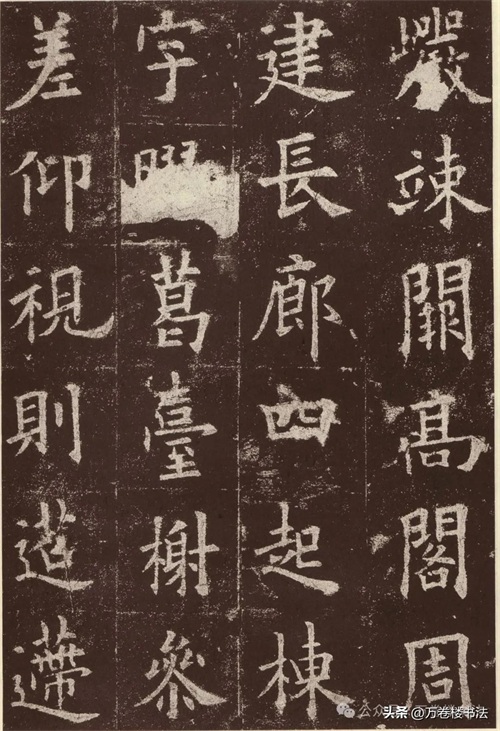 巖竦闕高閣周
建長廊四起棟
宇葛臺榭參
差仰視則迢遰
公众号
头条 @万卷楼书法